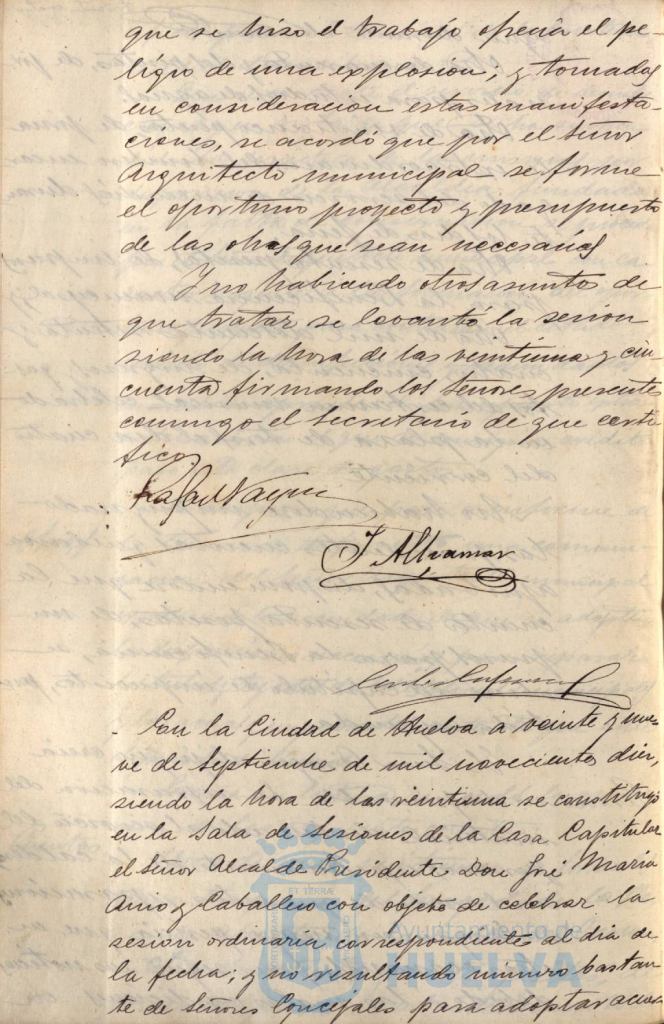 que se hiso el trabajo ofrecia el pe-
ligro de una explosion; y tomadas
en consideracion estas manifesta-
ciones, se acordó que por el Señor
Arquitecto municipal se forme
el oportuno proyecto y presupuesto
de las obras que sean necesarias
Y no habiendo otros asuntos de
que tratar se levantó la sesion
siendo la hora de las veintiuna y cin-
cuenta firmando los Señores presentes
conmigo el Secretario de que certi-
fico
Rafael
En la Ciudad de Huelva á veinte y nue-
ve de Septiembre de mil novecientos diez,
siendo la hora de las veintiuna se constituyó
en la Sala de Sesiones de la Casa Capitular
el Señor Alcalde Presidente Don José Maria
y Caballero con objeto de celebrar la
sesion ordinaria correspondiente al dia de
la fecha; y no resultando número bastan-
te de Señores Concejales para adoptar acuer
Ayuntamiento de
HUELVA